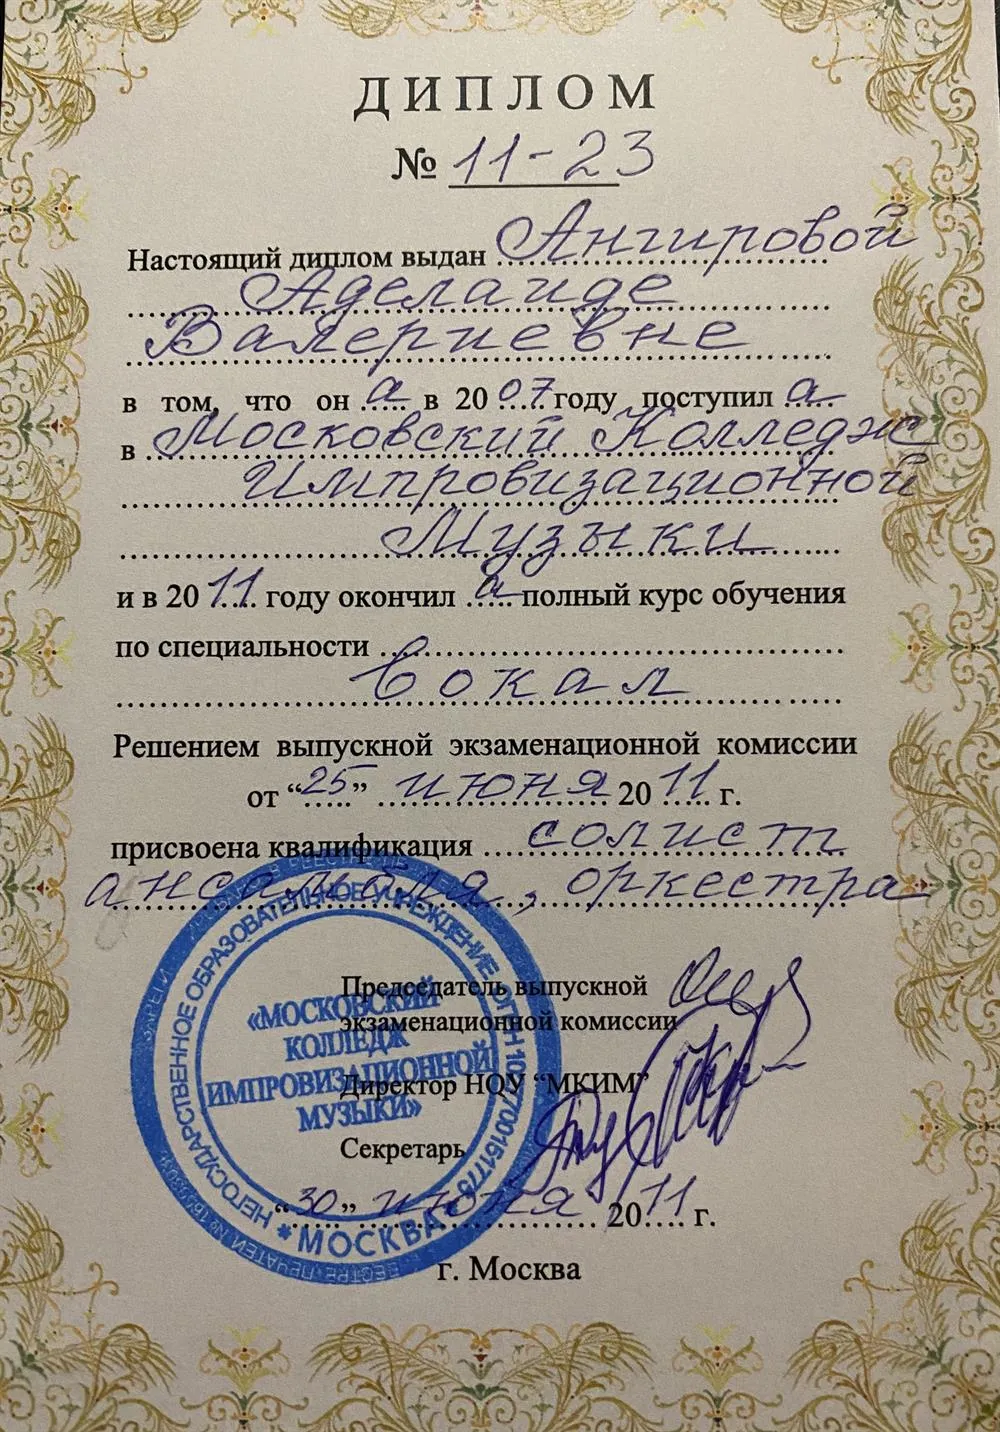 ДИПЛОМ
№ 11-23
Настоящий диплом выдан Ангировой
Аделаиде
Валериевне
в том, что он а в 2007 году поступил а
в Московский Колледж
Импровизационной
Музыки
и в 2011 году окончил а полный курс обучения
по специальности
вокал
Решением выпускной экзаменационной комиссии
от “25” июня 2011 г.
присвоена квалификация солист
ансамбля, оркестра
Председатель выпускной
экзаменационной комиссии
Директор НОУ “МКИМ”
Секретарь
“30” июня 2011 г.
г. Москва
НЕГОСУДАРСТВЕННОЕ ОБРАЗОВАТЕЛЬНОЕ УЧРЕЖДЕНИЕ
«МОСКОВСКИЙ
КОЛЛЕДЖ
ИМПРОВИЗАЦИОННОЙ
МУЗЫКИ»
* МОСКВА